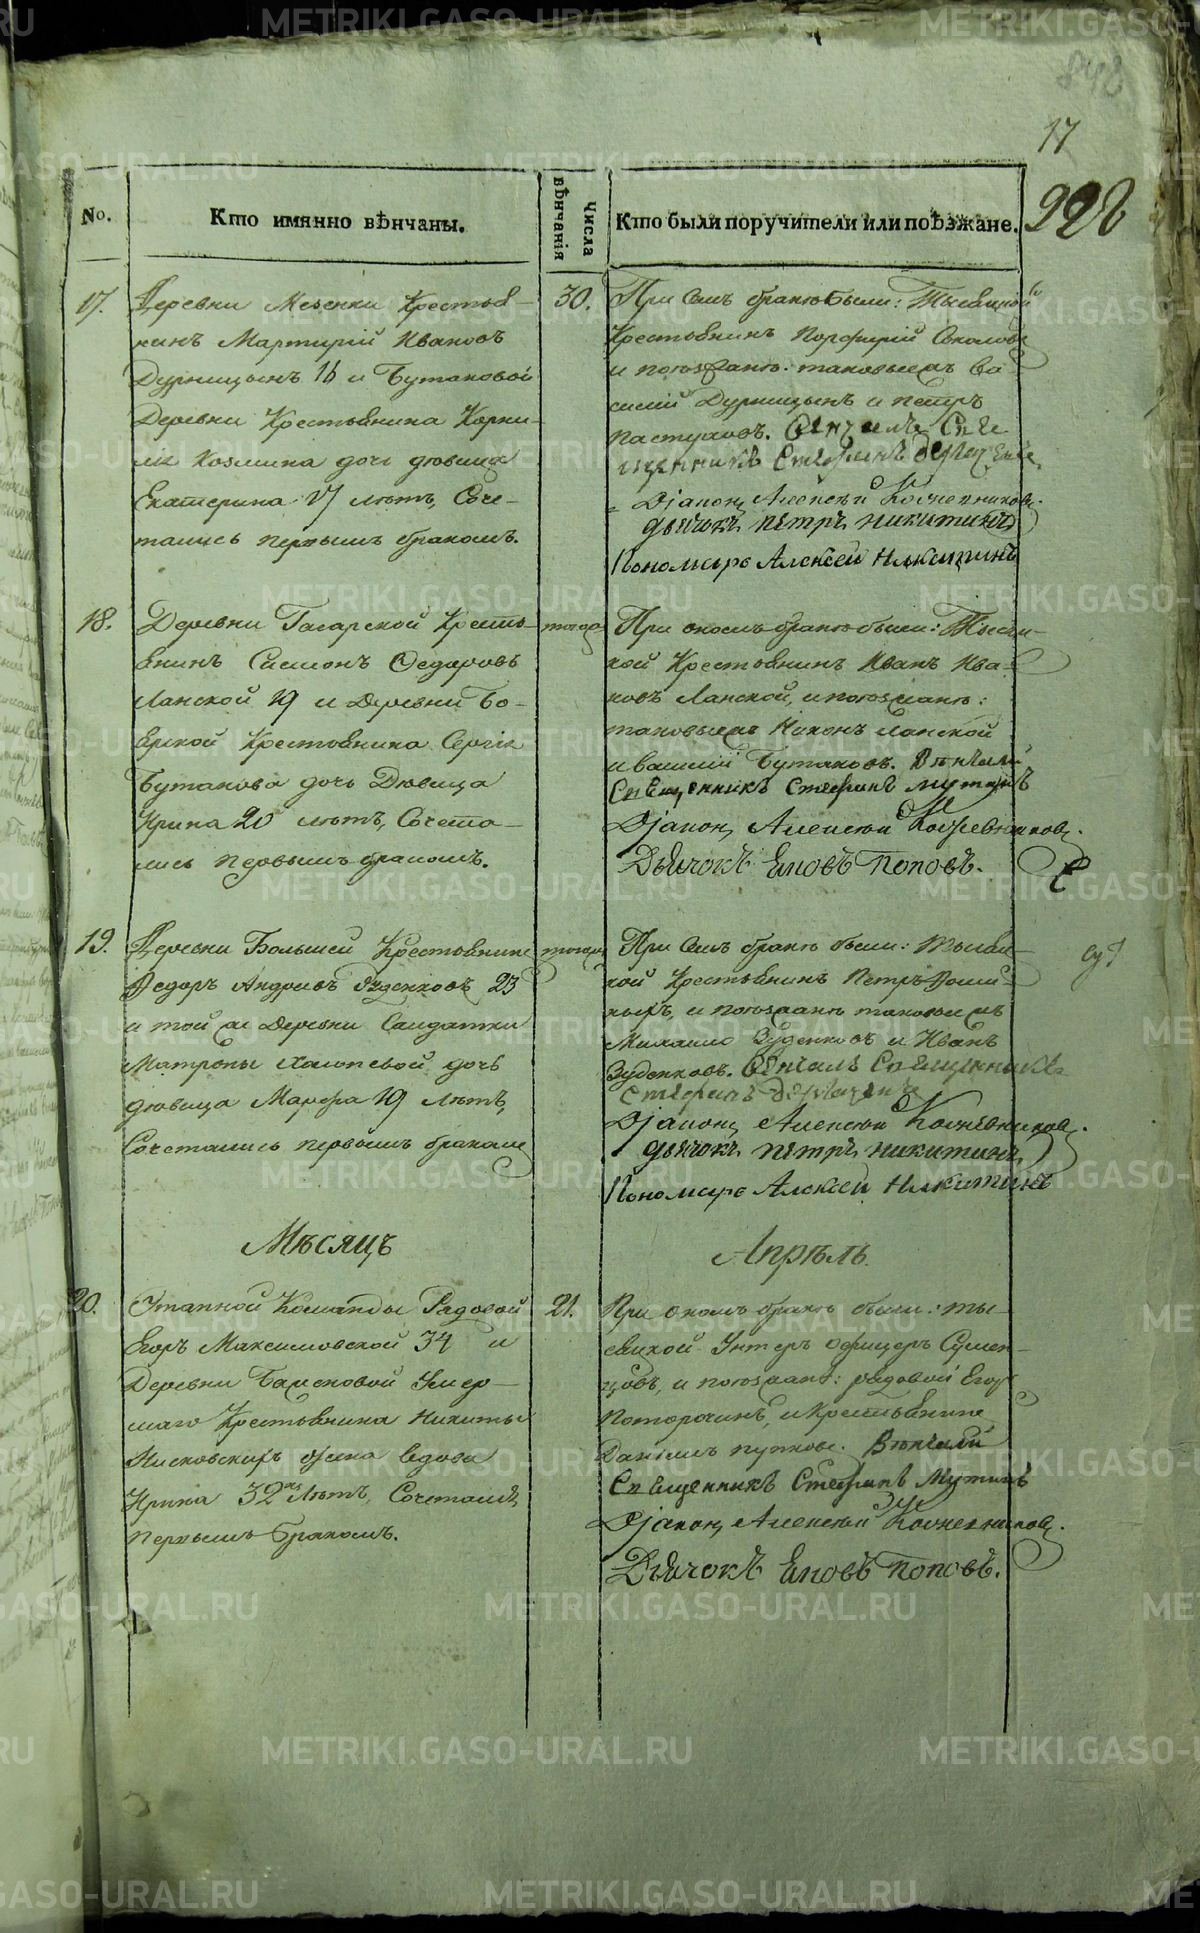 17
928
No.
Кто имянно вѣнчаны.
Числа вѣнчанія
Кто были поручители или поѣзжане.
17.
Деревни Мезенки Крестьян-
нинъ Мартирій Ивановъ
Дурницынъ 18 и Бутаковой
Деревни Крестьянина Корни-
лія Козмина дочь дѣвица
Екатерина 17 лѣтъ, Соче-
тались первымъ бракомъ.
30.
При семъ бракѣ были: Тысяцкой
Крестьянинъ Порфирій Соколовъ
и поѣзжане: таковыежъ Ва-
силій Дурницынъ и Петръ
Пастуховъ. Венчалъ Свя-
щенникъ Стефанъ
Діаконъ Алексѣй Кожевниковъ.
дьячокъ петръ никитинъ
Пономарь Алексѣй Никитинъ
18.
Деревни Гагарской Кресть-
янинъ Симіонъ Ѳедоровъ
Ланской 19 и Деревни Бо-
ярской Крестьянина Сергія
Бутакова дочь Дѣвица
Ирина 20 лѣтъ, Сочета-
лись первымъ бракомъ.
тогоже
При ономъ бракѣ были: Тысяц-
кой Крестьянинъ Иванъ Ива-
новъ Ланской, и поѣзжане:
таковыежъ Никонъ Ланской
и Василій Бутаковъ. Вѣнчали
Священникъ Стефанъ Мутинъ
Діаконъ Алексѣй Кожевниковъ.
Дьячокъ Яковъ Поповъ.
19.
Деревни Большей Крестьянинъ
Ѳедоръ Андреевъ Зуденковъ 23
и той же Деревни Салдатки
Матроны дочь
дѣвица Марѳа 19 лѣтъ,
Сочетались первымъ бракомъ
тогоже
При семъ бракѣ были: тысяц-
кой Крестьянинъ Петръ
и поѣзжане таковыежъ
Михаило Зуденковъ и Иванъ
Зуденковъ. Венчалъ Священникъ
Стефанъ
Діаконъ Алексѣй Кожевниковъ.
дьячокъ петръ никитинъ
Пономарь Алексѣй Никитинъ
Мѣсяцъ
Апрѣль.
20.
Этапной Команды Рядовой
Егоръ Максимовской 34 и
Деревни Баженовой Умер-
шаго Крестьянина Никиты
жена вдова
Ирина 32хъ Лѣтъ, Сочетались
первымъ бракомъ.
21.
При ономъ бракѣ были: ты-
сяцкой Унтеръ Офицеръ Сумен-
цовъ, и поѣзжане: рядовой Егоръ
Поторочинъ, и Крестьянинъ
Даніилъ Пупковъ. Вѣнчали
Священникъ Стефанъ Мутинъ
Діаконъ Алексѣй Кожевниковъ.
Дьячокъ Яковъ Поповъ.
METRIKI.GASO-URAL.RU